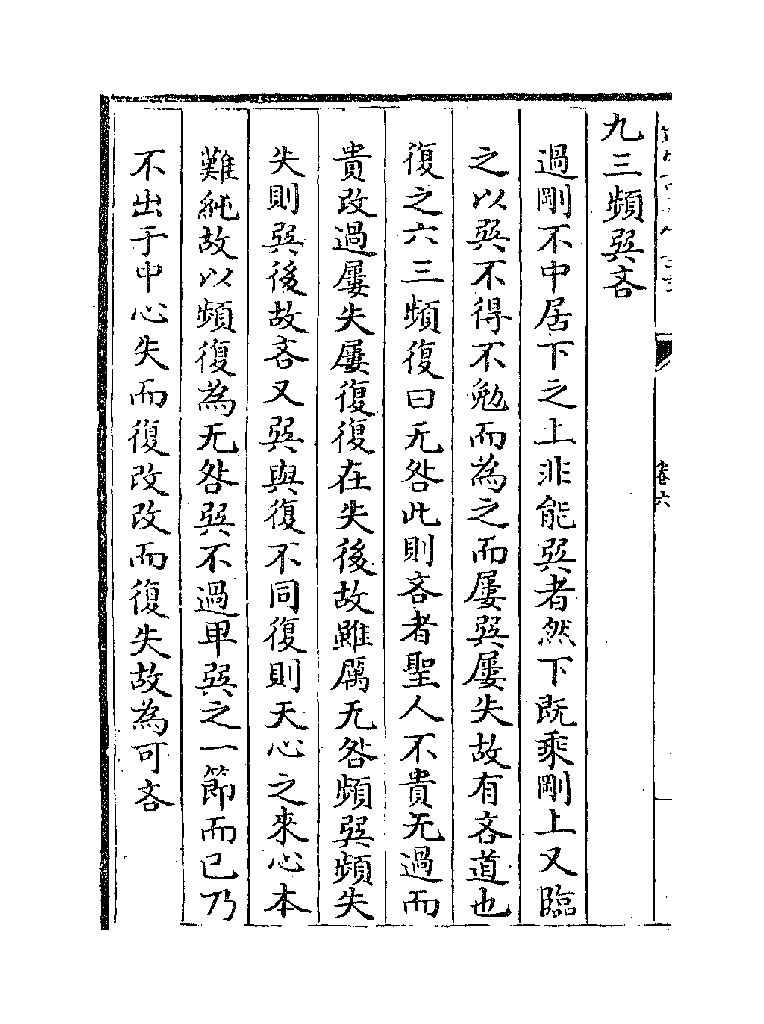 九三頻巽吝
過剛不中居下之上非能巽者然下既乘剛上又臨
之以巽不得不勉而為之而屢巽屢失故有吝道也
復之六三頻復曰无咎此則吝者聖人不貴无過而
貴改過屢失屢復復在失後故雖厲无咎頻巽頻失
失則巽後故吝又巽與復不同復則天心之來心本
難純故以頻復為无咎巽不過卑巽之一節而已乃
不出于中心失而復改改而復失故為可吝
卷六